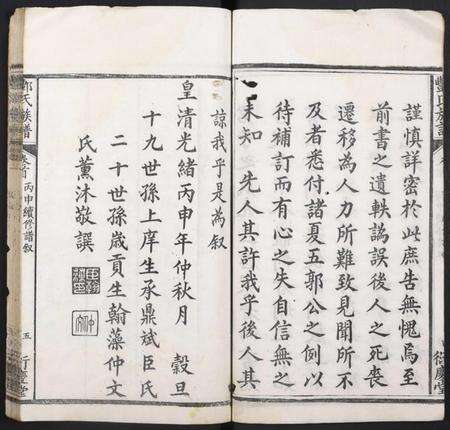 謹慎詳密於此庶告無愧焉至
前書之遺軼譌誤後人之死喪
遷移為人力所難致見聞所不
及者悉付諸夏五郭公之例以
待補訂而有心之失自信無之
未知 先人其許我乎後人其
諒我乎是為叙
皇清光緒丙申年仲秋月 穀旦
十九世孫上庠生承鼎斌臣氏
二十世孫歲貢生翰藻仲文
氏薰沐敬譔
氏族譜
丙申續修譜叙
五
衍慶堂